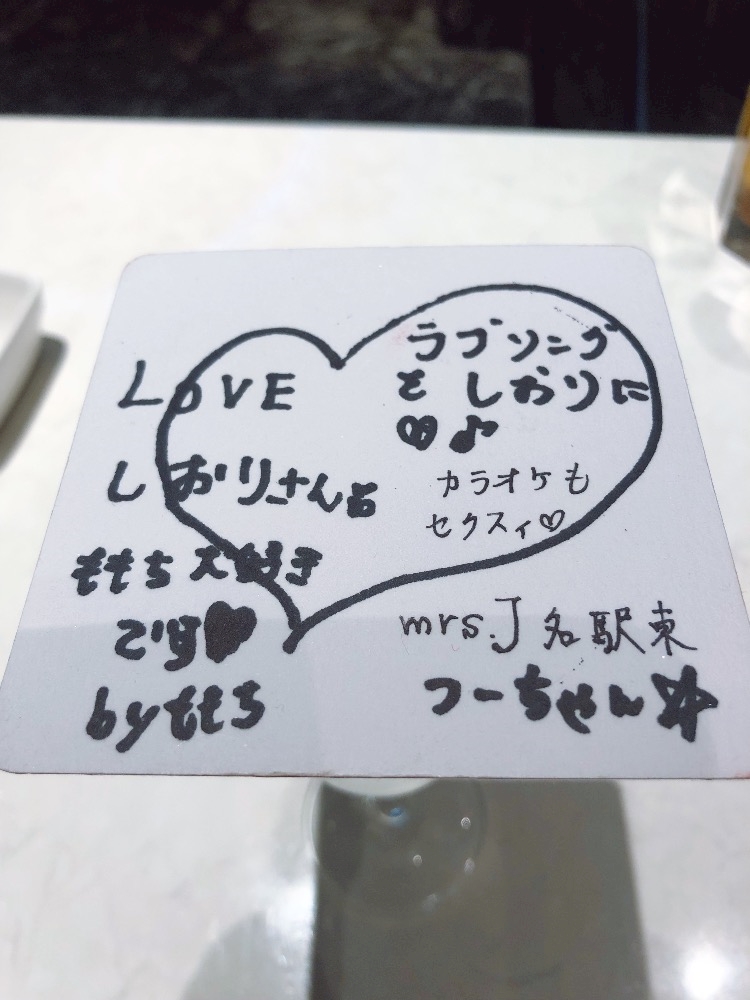 LOVE
しおりさんも
ももち大好き
です♥
byももち
ラブソング
を しおりに
♡♪
カラオケも
セクスィ♡
mrs.J 名駅東
つーちゃん☆